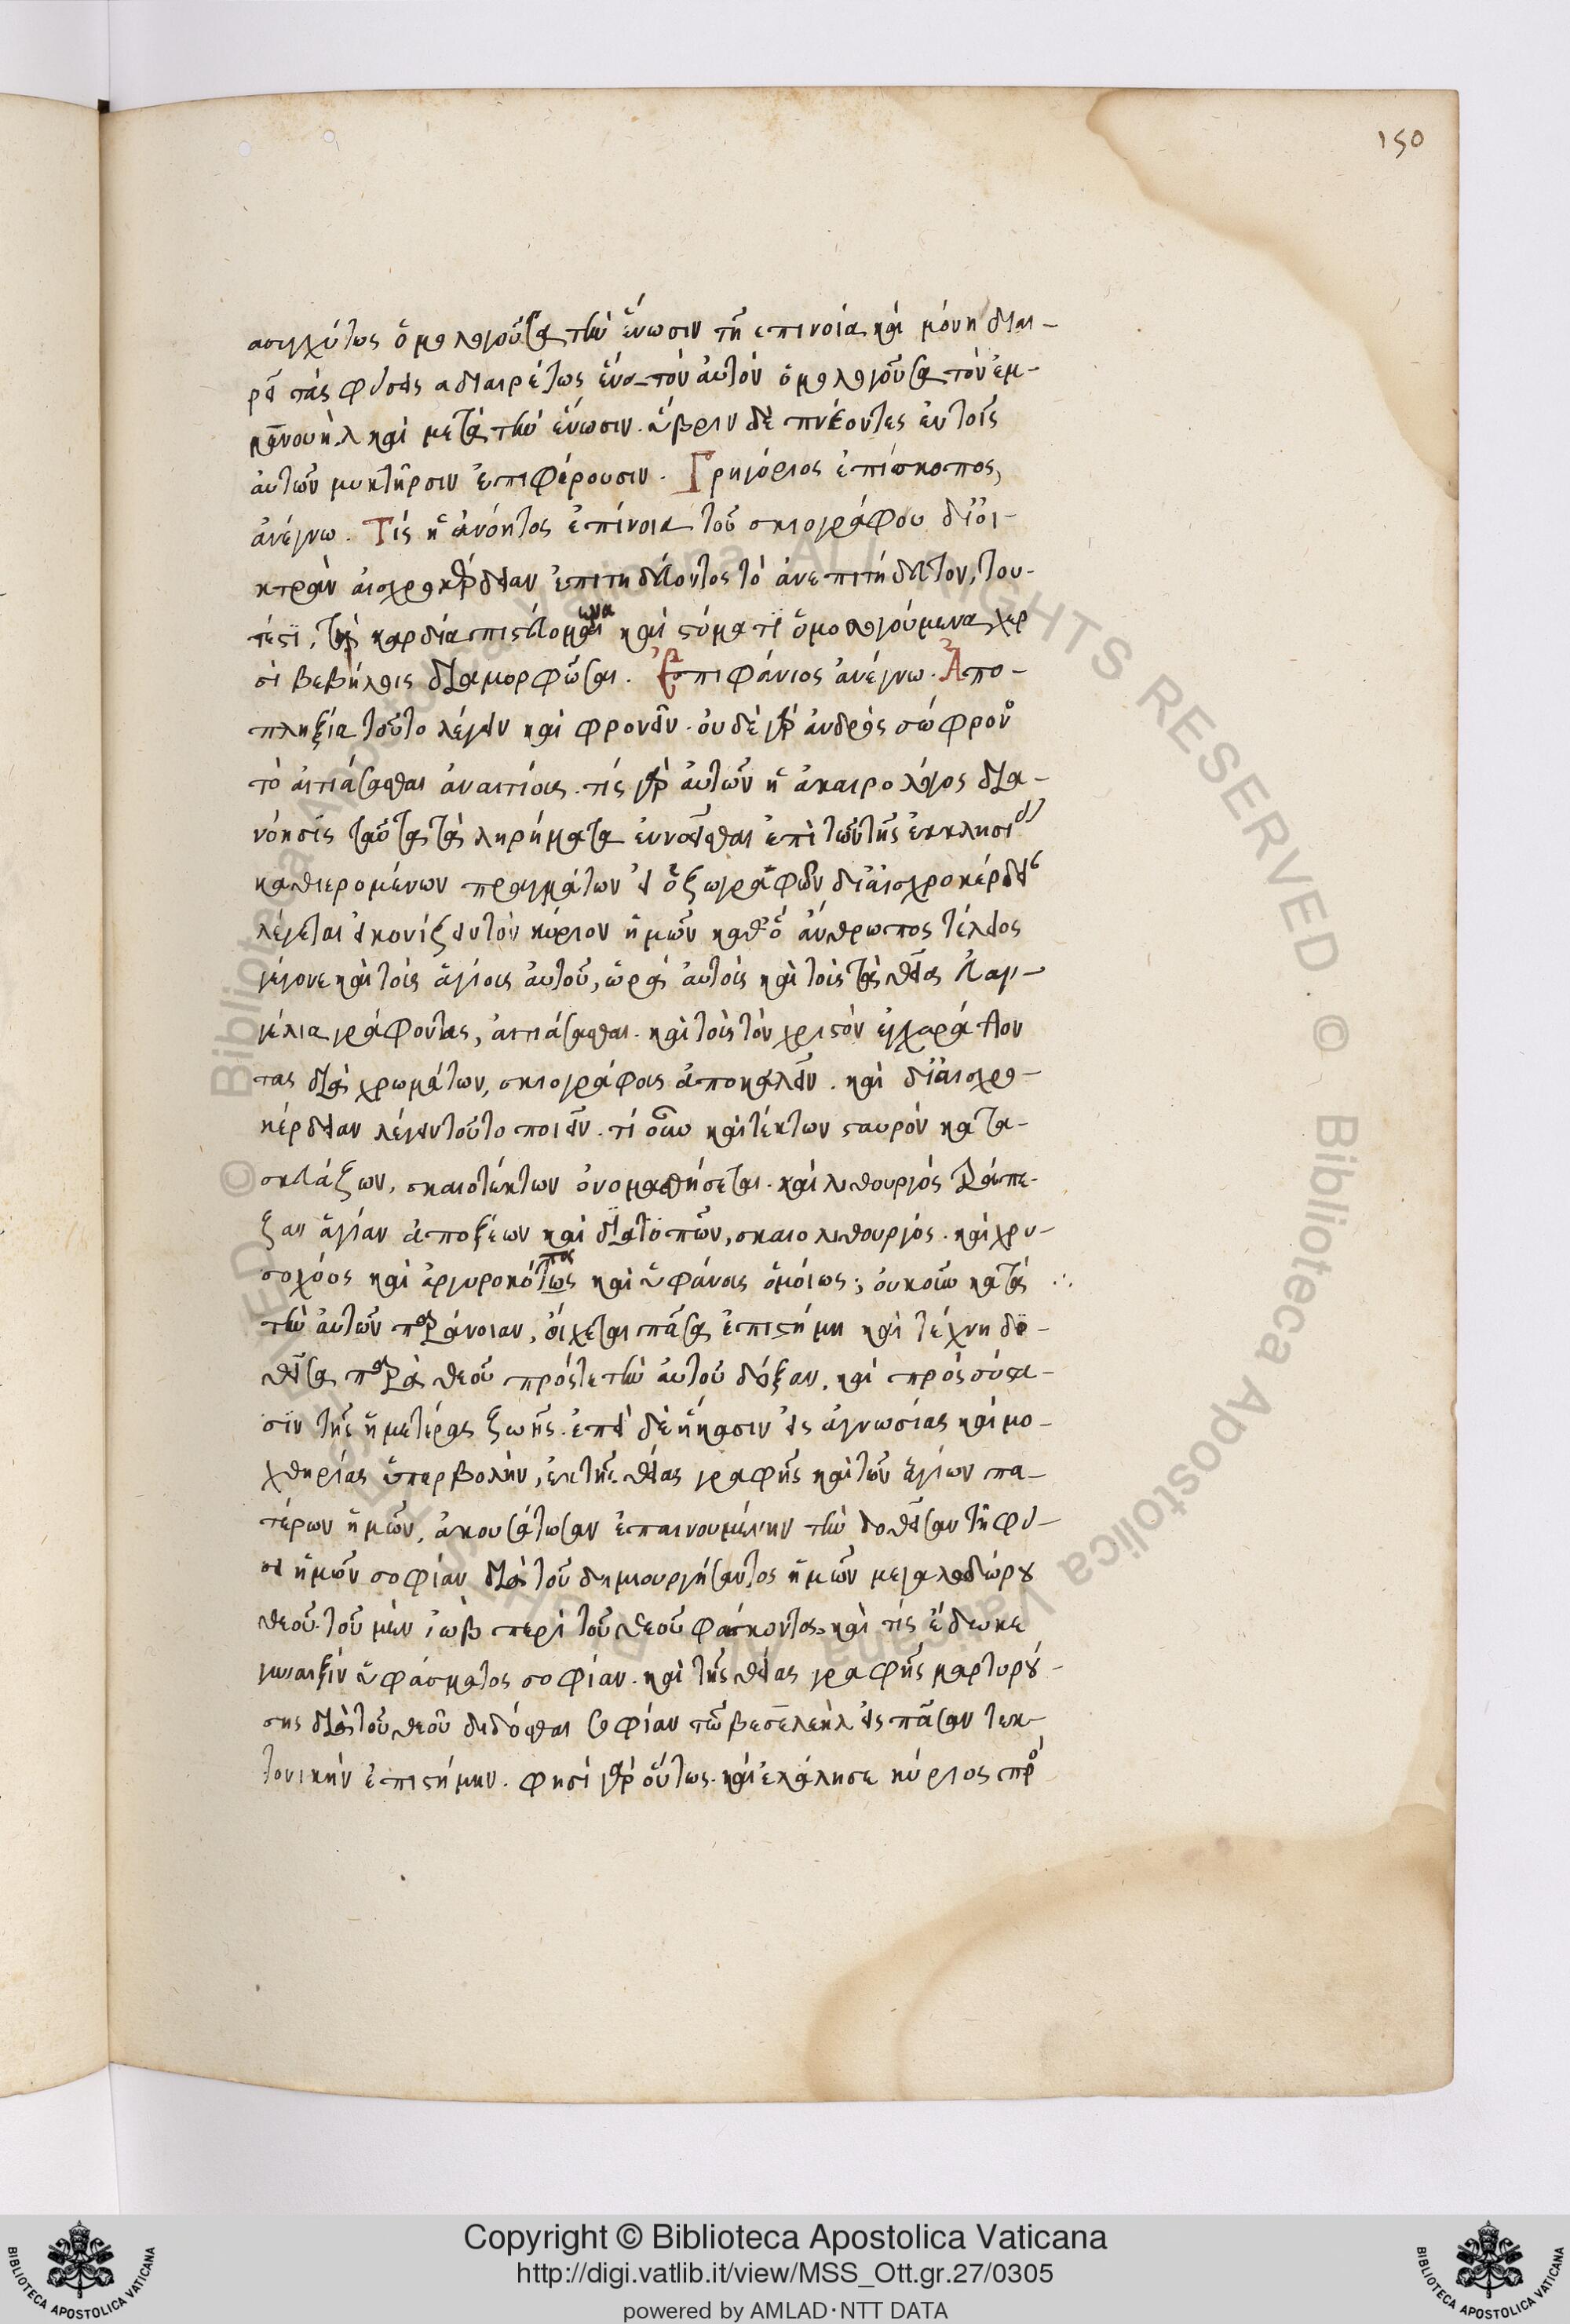 150
ασυγχύτως ὁμολογοῦσα τὴν ἕνωσιν τῇ επινοία καὶ μόνη διαι-
ρεῖ τὰς φύσεις αδιαιρέτως ἕνα τὸν αὐτὸν ὁμολογοῦσα τὸν ἐμ-
μανουὴλ καὶ μετὰ τὴν ἕνωσιν. ὕβριν δὲ πνέοντες ἐν τοῖς
αὐτῶν μυκτῆρσιν ἐπιφέρουσιν. Γρηγόριος ἐπίσκοπος,
ἀνέγνω. Τίς ἡ ἀνόητος ἐπίνοια τοῦ σκιογράφου δι οι-
κτρὰν αισχροκέρδειαν ἐπιτηδεύοντος τὸ ἀνεπιτήδευτον, του-
τέστι, τὰ καρδία πιστευόμενα καὶ στόματι ὁμολογούμενα χερ
σὶ βεβήλοις διαμορφῶσαι. Ἐπιφάνιος ἀνέγνω. Ἀπο-
πληξία τοῦτο λέγειν καὶ φρονεῖν. ουδὲ γὰρ ἀνδρὸς σώφρον
τὸ αἰτιάσασθαι ἀναιτίοις. τίς γὰρ αὐτῶν ἡ ἀκαιρολόγος δια-
νόησις ταῦτα τὰ ληρήματα ἐννοεῖσθαι ἐπὶ τῶν τῆς ἐκκλησι
καθιερομένων πραγμάτων εἰ ὁ ζωγράφων δι αἰσχροκέρδει
λέγεται εἰκονίζειν τὸν κύριον ἡμῶν καθ ὃ ἄνθρωπος τέλειος
γέγονε καὶ τοὺς ἁγίους αὐτοῦ, ὥρα αὐτοῖς καὶ τοὺς τὰ θεῖα ευαγ-
γέλια γράφοντας, αἰτιάσασθαι. καὶ τοὺς τὸν χριστὸν ἐγχαράττον
τας διὰ χρωμάτων, σκιογράφοις ἀποκαλεῖν. καὶ δι αισχρο-
κέρδειαν λέγειν τοῦτο ποιεῖν. τί οὖν καὶ τέκτων σταυρὸν κατα-
σκευάζων, σκαιοτέκτων ὀνομασθήσεται. καὶ λιθουργὸς τράπε-
ζαν ἁγίαν ἀποξέων καὶ διατυπῶν, σκαιολιθουργός. καὶ χρυ-
σοχόος καὶ ἀργυροκόπος καὶ ὑφάντης ὁμοίως; ουκοῦν κατὰ
τὴν αὐτῶν παράνοιαν, οἴχεται πᾶσα ἐπιστήμη καὶ τέχνη δο-
θεῖσα παρὰ θεοῦ πρός τε τὴν αὐτοῦ δόξαν, καὶ πρὸς σύστα-
σιν τῆς ἡμετέρας ζωῆς. ἐπεὶ δὲ ἥκασιν εἰς ἀγνωσίας καὶ μο-
χθηρίας ὑπερβολὴν, ἐκ τῆς θείας γραφῆς καὶ τῶν ἁγίων πα-
τέρων ἡμῶν, ἀκουσάτωσαν ἐπαινουμένην τὴν δοθεῖσαν τῇ φύ-
σει ἡμῶν σοφίαν διὰ τοῦ δημιουργήσαντος ἡμῶν μεγαλοδώρου
θεοῦ. τοῦ μὲν ἰὼβ περὶ τοῦ θεοῦ φάσκοντος. καὶ τίς ἔδωκε
γυναιξὶν ὑφάσματος σοφίαν. καὶ τῆς θείας γραφῆς μαρτυρού-
σης διὰ τοῦ θεοῦ δεδόσθαι σοφίαν τῶ βεσελεὴλ εἰς πᾶσαν τεκ-
τονικὴν ἐπιστήμην. φησὶ γὰρ οὕτως. καὶ ἐλάλησε κύριος πρὸ
Copyright © Biblioteca Apostolica Vaticana
http://digi.vatlib.it/view/MSS_Ott.gr.27/0305
powered by AMLAD·NTT DATA